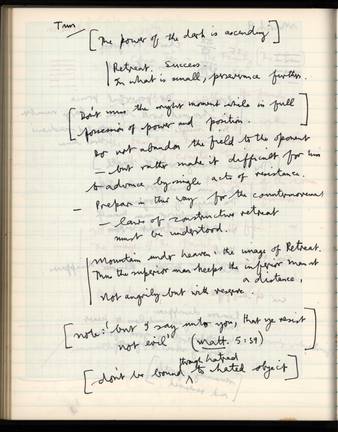 Tun
[The power of the dark is ascending]
Retreat. Success.
In what is small, perseverance furthers.
[Don't miss the right moment while in full
possession of power and position.]
Do not abandon the field to the oponent
– but rather make it difficult for him
to advance by single acts of resistance.
– Prepare in this way for the countermovement
– laws of constructive retreat
must be understood.
Mountain under heaven: the image of Retreat.
Thus the superior man keeps the inferior man at
a distance,
Not angrily but with reserve.
[note: 'but I say unto you, that ye resist
not evil' (Matt. 5:39)]
through hatred
[don't be bound ^ to hated object]